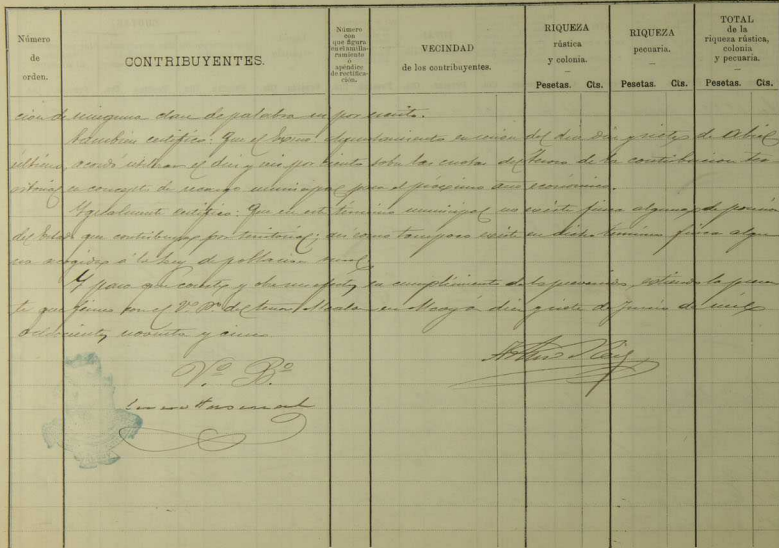 Número
de
orden.
CONTRIBUYENTES.
Número
con
que figura
en el amilla-
ramiento
ó
apéndice
de rectifica-
ción.
VECINDAD
de los contribuyentes.
RIQUEZA
rústica
y colonia.
Pesetas. Cts.
RIQUEZA
pecuaria.
Pesetas. Cts.
TOTAL
de la
riqueza rústica,
colonia
y pecuaria.
Pesetas. Cts.
ción de ninguna clase de palabra ni por escrito.
Tambien certifico: Que el Excmo. Ayuntamiento en sesion del dia diez y siete de Abril
último, acordó utilizar el diez y seis por ciento sobre las cuotas del Tesoro de la contribucion te-
rritorial en concepto de recargo municipal para el próximo año económico.
Igualmente certifico: Que en este término municipal no existe finca alguna de
del Estado que contribuya por territorial; asi como tampoco existe en dicho término finca algu-
na acogida á la Ley de poblacion rural.
Y para que conste y obre sus efectos, en cumplimiento de lo prevenido, estiendo la presen-
te que firmo con el Vº Bº del Señor Alcalde en á diez y siete de Junio de mil
ochocientos noventa y cinco.
Vº Bº